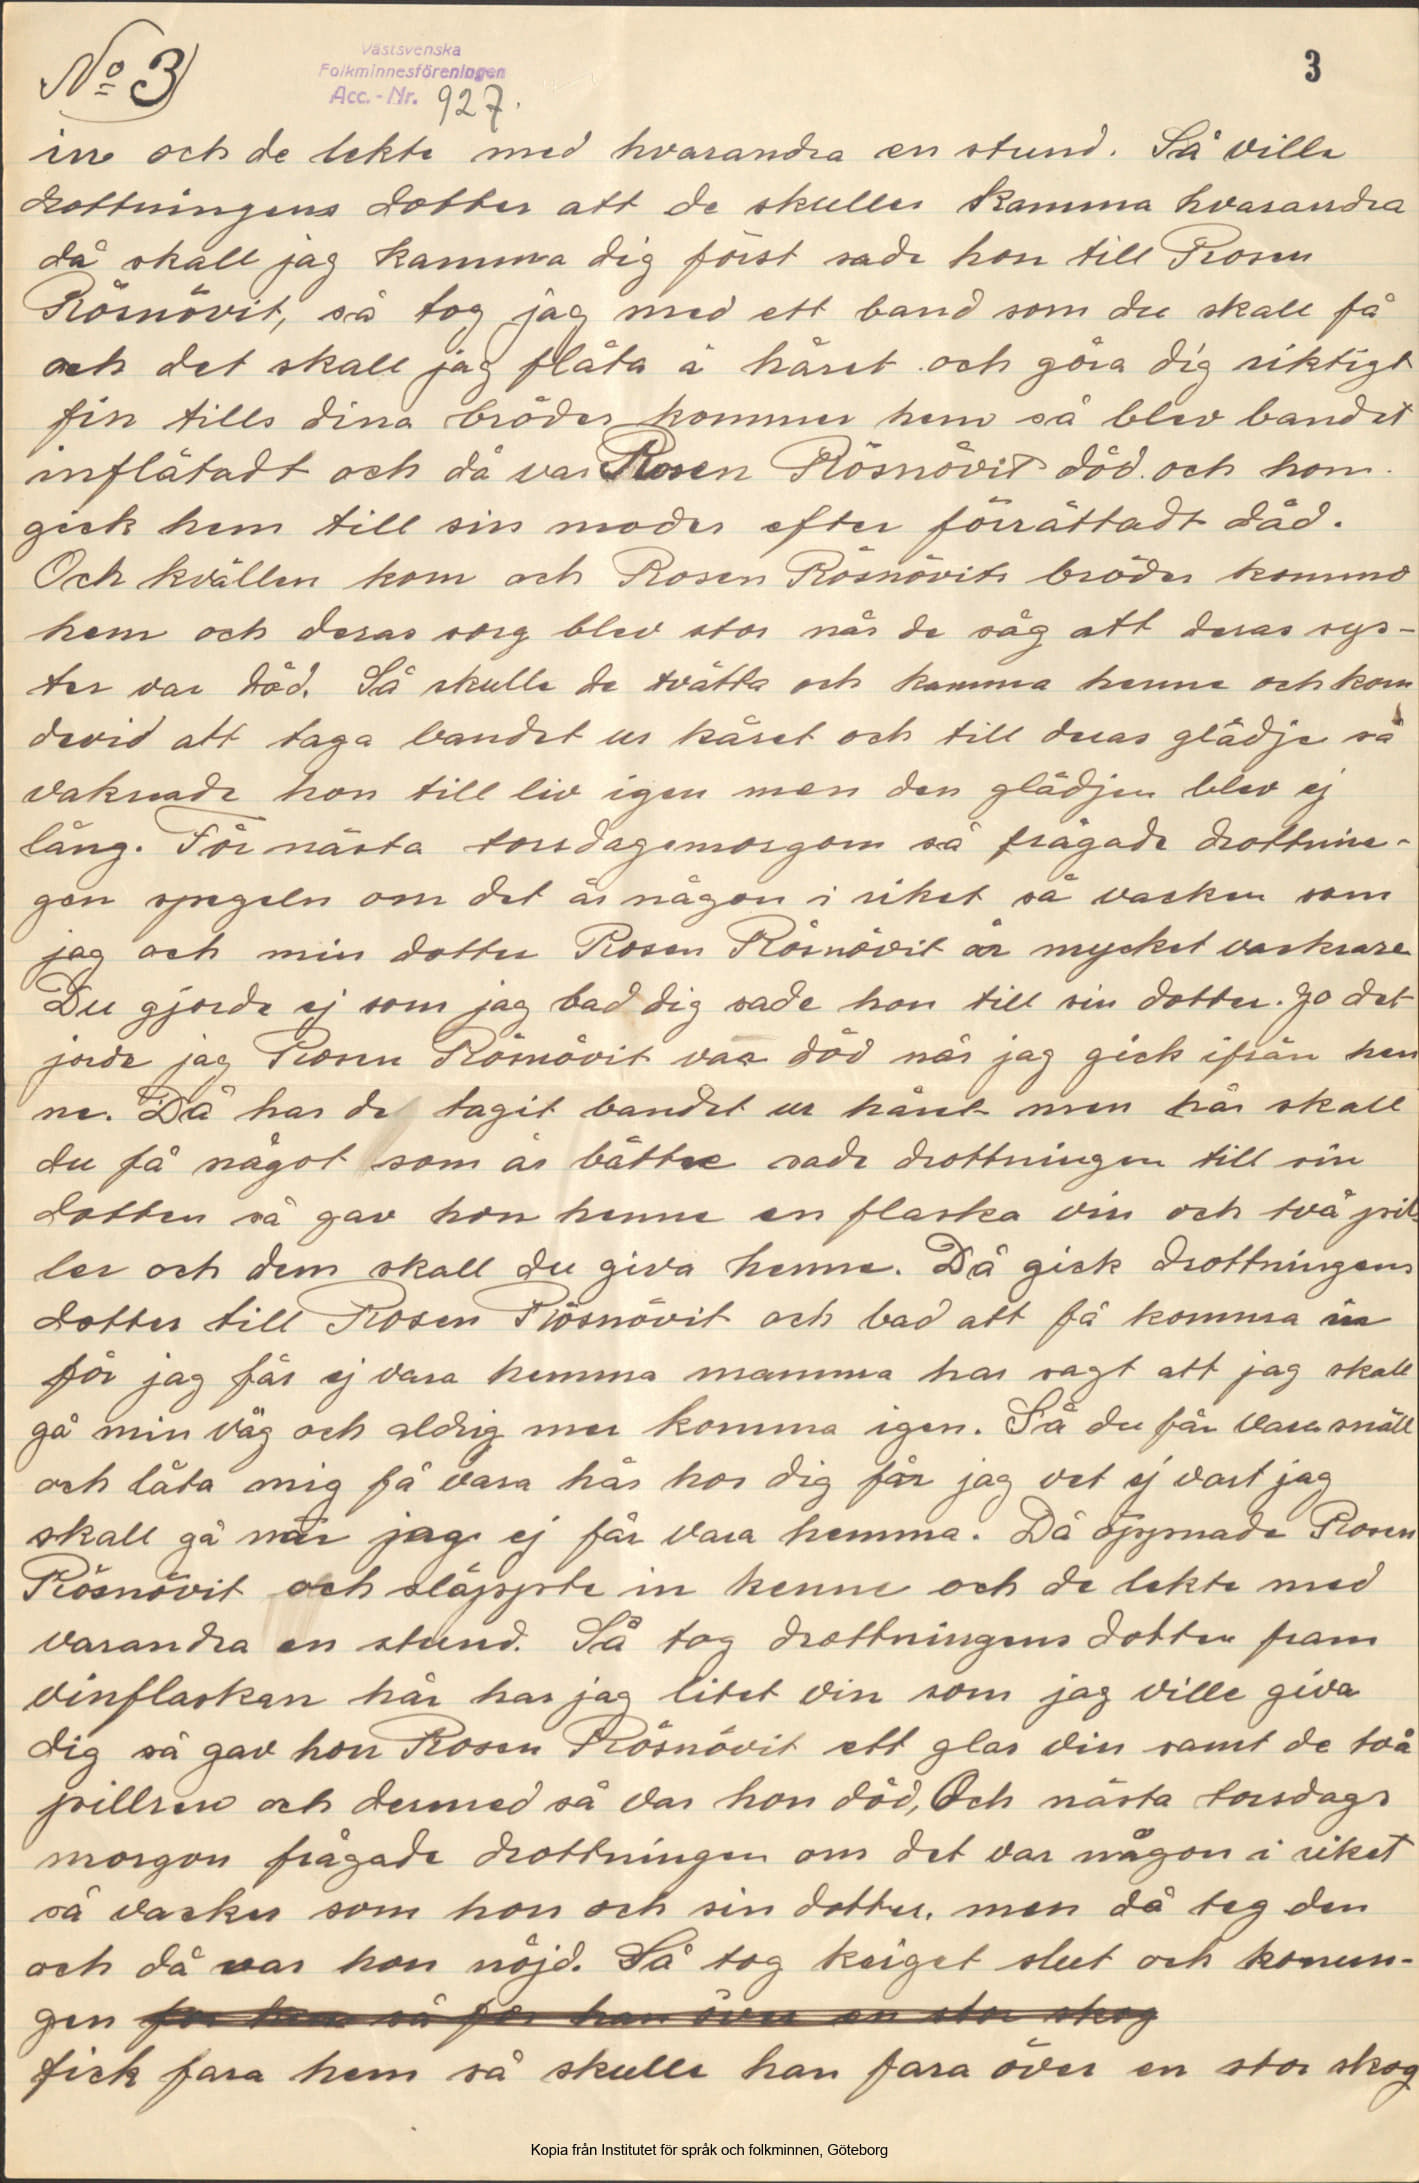 No 3
Västsvenska
Folkminnesföreningen
Acc.-Nr. 927.
3
in och de lekte med hvarandra en stund. Så ville
drottningens dotter att de skulle kamma hvarandra
då skall jag kamma dig först sade hon till Rosen
Rösnövit, så tog jag med ett band som du skall få
och det skall jag fläta i håret och göra dig riktigt
fin tills dina bröder kommer hem så blev bandet
inflätadt och då var Rosen Rösnövit död och hon
gick hem till sin moder efter förrättadt dåd.
Och kvällen kom och Rosen Rösnövits bröder kommo
hem och deras sorg blev stor när de såg att deras sys-
ter var död. Så skulle de tvätta och kamma henne och kom
devid att taga bandet ur håret och till deras glädje så
vaknade hon till liv igen men den glädjen blev ej
lång. För nästa torsdagsmorgon så frågade drottnin-
gen spegeln om det är någon i riket så vacker som
jag och min dotter Rosen Rösnövit är mycket vackrare
Du gjorde ej som jag bad dig sade hon till sin dotter. Jo det
jorde jag Rosen Rösnövit var död när jag gick ifrån hen
ne. Då har de tagit bandet ur håret men här skall
du få något som är bättre sade drottningen till sin
dotter så gav hon henne en flaska vin och två pil-
ler och dem skall du giva henne. Då gick drottningens
dotter till Rosen Rösnövit och bad att få komma in
för jag får ej vara hemma mamma har sagt att jag skall
gå min väg och aldrig mer komma igen. Så du får vara snäll
och låta mig få vara här hos dig för jag vet ej vart jag
skall gå när jag ej får vara hemma. Då öppnade Rosen
Rösnövit och släppte in henne och de lekte med
varandra en stund. Så tog drottningens dotter fram
vinflaskan här har jag litet vin som jag ville giva
dig så gav hon Rosen Rösnövit ett glas vin samt de två
pillren och dermed så var hon död, Och nästa torsdags
morgon frågade drottningen om det var någon i riket
så vacker som hon och sin dotter, men då teg den
och då var hon nöjd. Så tog kriget slut och konun-
gen for hem så for han över en stor skog
fick fara hem så skulle han fara över en stor skog
Kopia från Institutet för språk och folkminnen, Göteborg